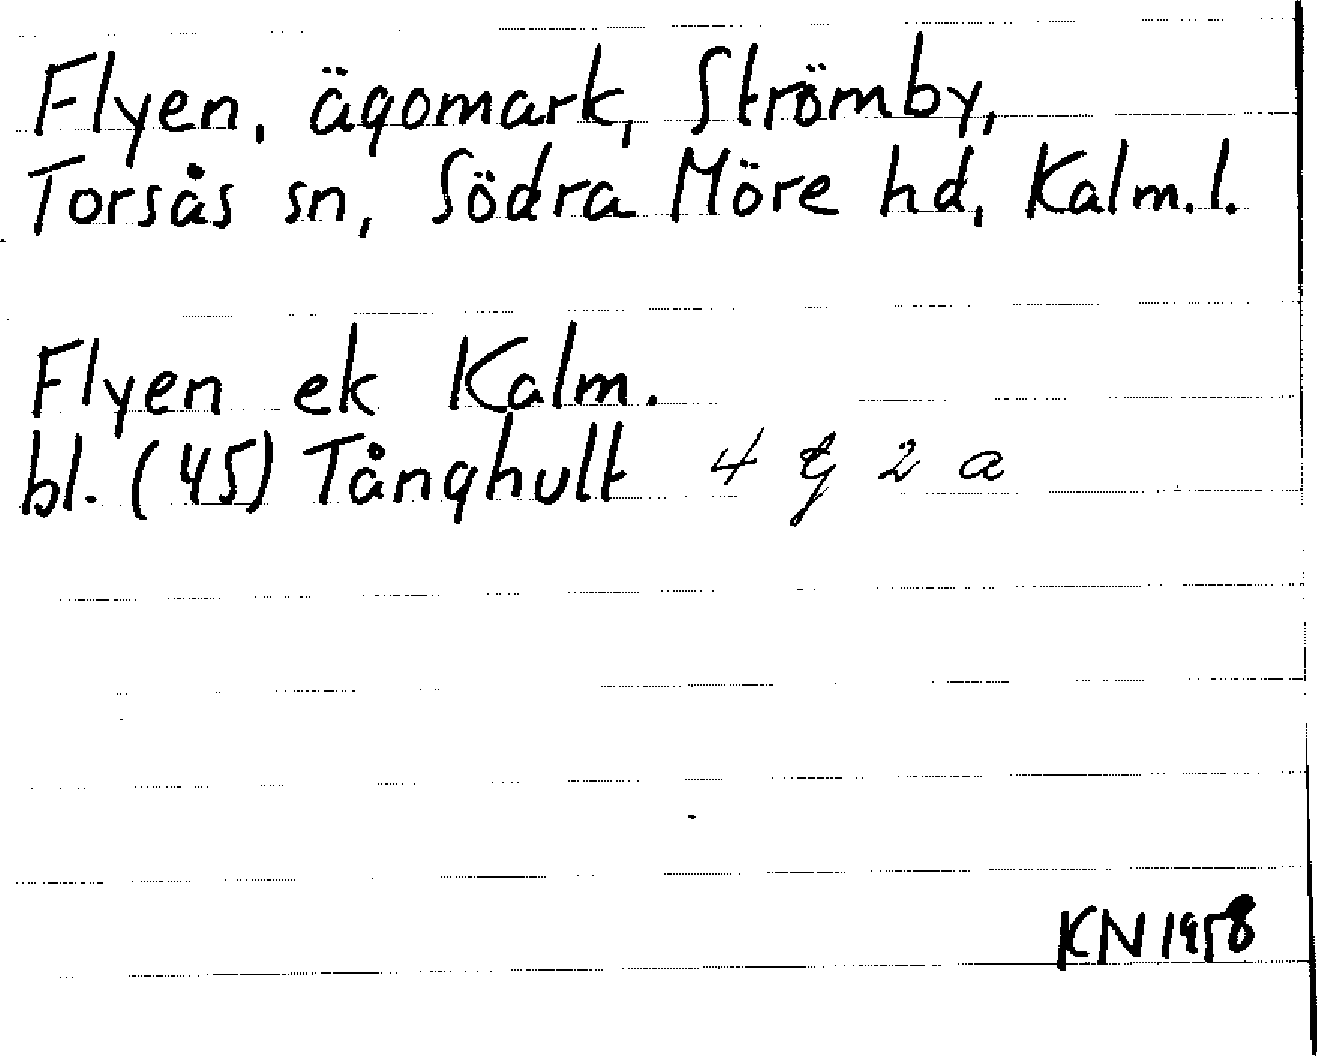 Flyen, ägomark, Strömby,
Torsås sn, Södra Möre hd, Kalm.l.
Flyen ek Kalm.
bl. (45) Tånghult 4 g 2 a
KN 1958